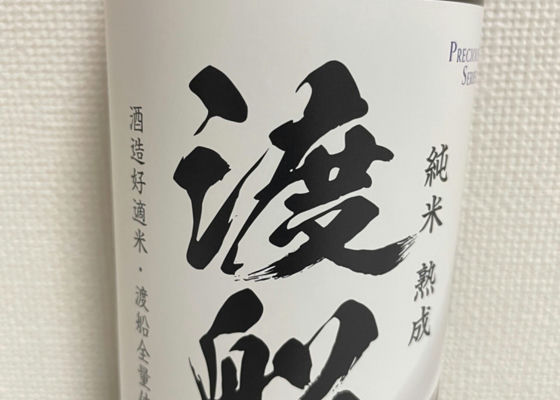 PRECIOUS
SERIES
純米 熟成
渡船
酒造好適米・渡船全量